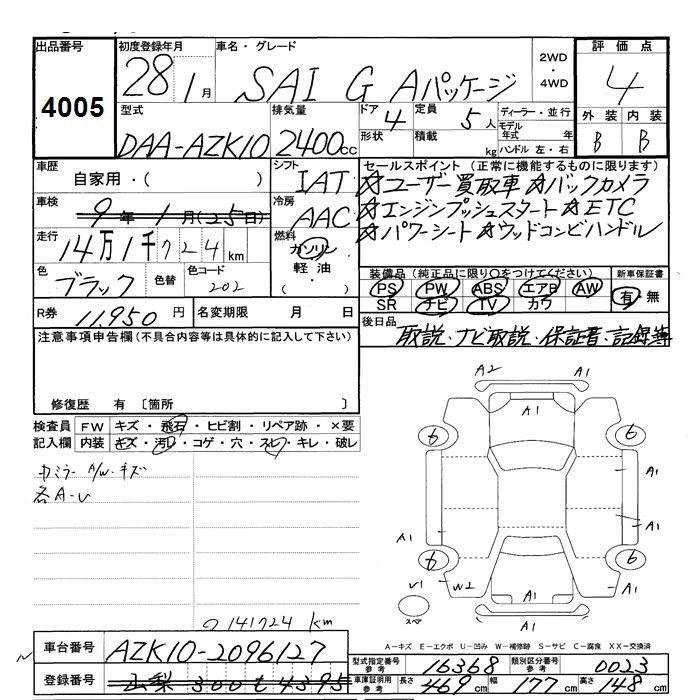 出品番号 4005
初度登録年月 28 1月
車名・グレード SAI G Aパッケージ
2WD・4WD
評価点 4
外装 B 内装 B
型式 DAA-AZK10
排気量 2400cc
ドア 4 形状
定員 5人 積載 kg
ディーラー・並行
モデル年式 年式
ハンドル 左・右
車歴 自家用・( )
シフト IAT
車検 9年1月(25日)
冷房 AAC
走行 14万1千724km
燃料 ガソリン 軽油・( )
色 ブラック 色替 色コード 202
セールスポイント (正常に機能するものに限ります)
☆ユーザー買取車 ☆バックカメラ
☆エンジンプッシュスタート ☆ETC
☆パワーシート ☆ウッドコンビハンドル
装備品 (純正品に限り〇をつけてください) 新車保証書
PS PW ABS エアB AW 有・無
SR ナビ TV カワ
R券 11,950円 名変期限 月 日
後日品 取説、ナビ取説、保証書、記録簿
注意事項申告欄 (不具合内容等は具体的に記入して下さい)
修復歴 有 〔箇所 〕
検査員記入欄 FW キズ・飛石・ヒビ割・リペア跡・×要
内装 キズ・汚レ・コゲ・穴・スレ・キレ・破レ
カミラー A/W・キズ
各A-U
A2 A1
A1
6 6
A1
A1
A1
6 6
V1 W2 A1 A1
スペア
A1
141724 km
A-キズ E-エクボ U-凹み W-補修跡 S-サビ C-腐食 XX-交換済
車台番号 AZK10-2096127
登録番号 山梨 300 も 4395
型式指定番号 参考 16368 類別区分番号 参考 0023
車庫証明用 参考 長さ 469cm 幅 177cm 高さ 148cm